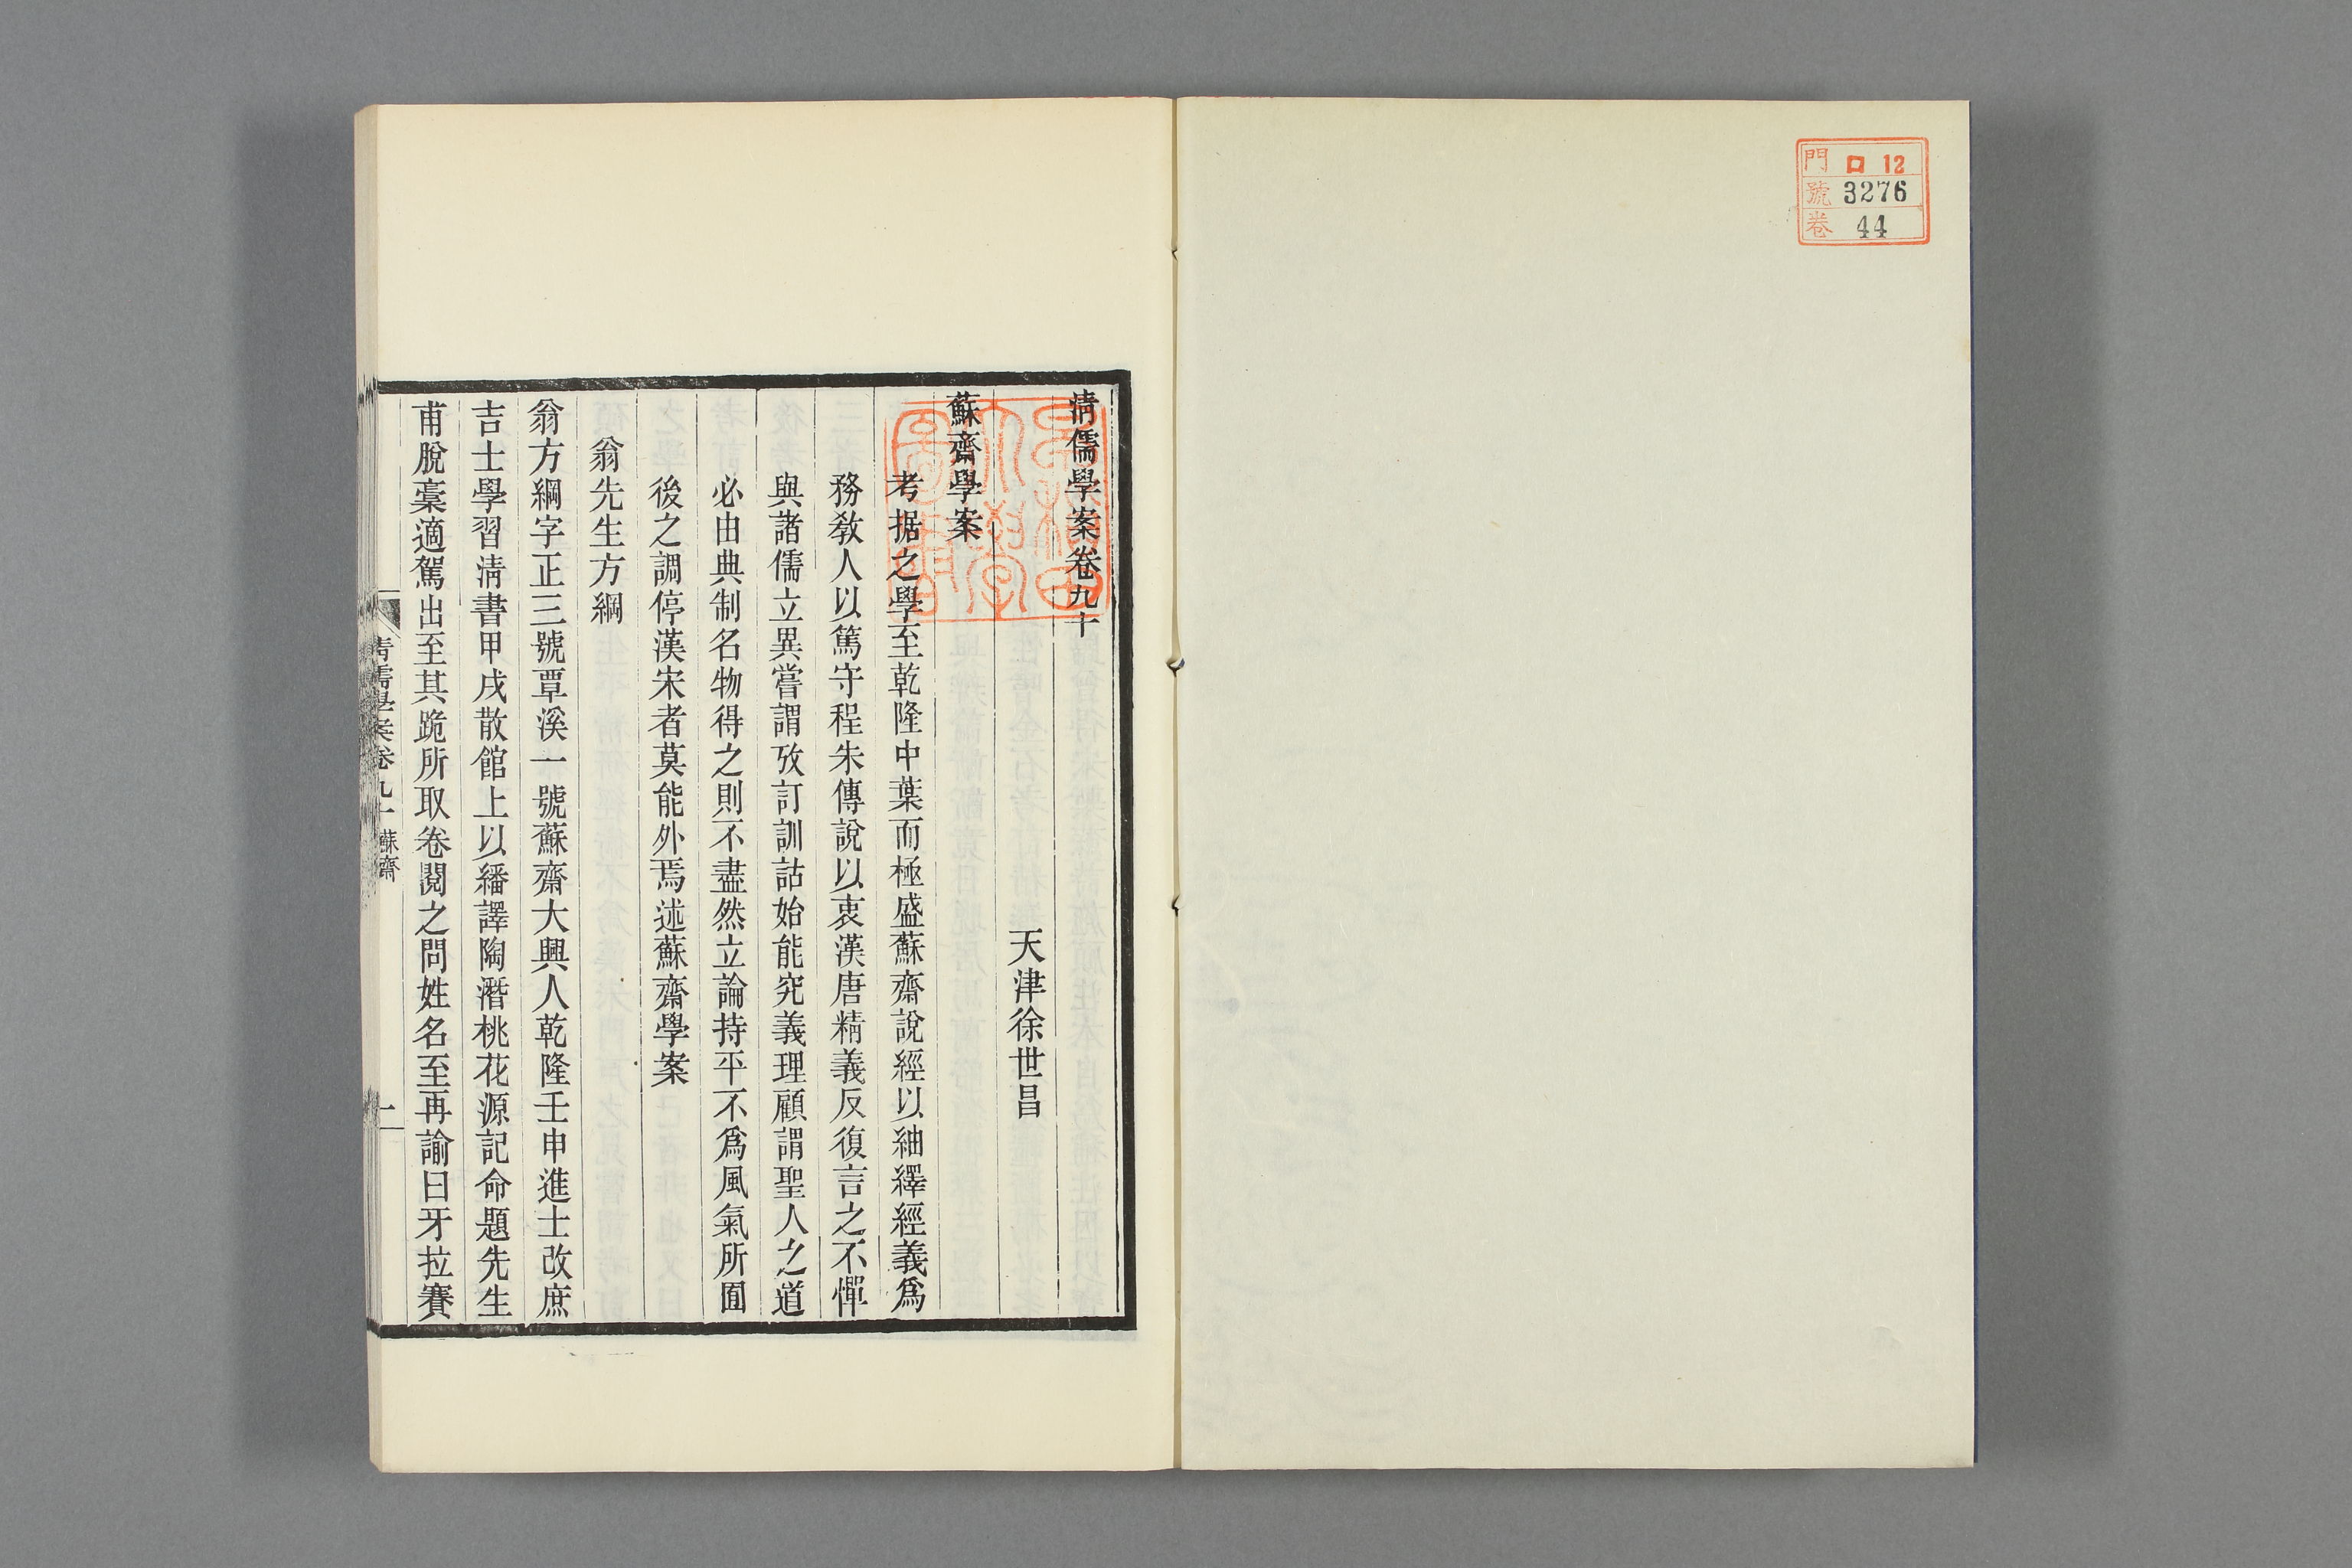 門 口 12
號 3276
卷 44
清儒學案卷九十
天津徐世昌
蘇齋學案
考据之學至乾隆中葉而極盛蘇齋說經以紬繹經義爲
務教人以篤守程朱傳說以衷漢唐精義反復言之不憚
與諸儒立異嘗謂攷訂訓詁始能究義理顧謂聖人之道
必由典制名物得之則不盡然立論持平不爲風氣所囿
後之調停漢宋者莫能外焉述蘇齋學案
翁先生方綱
翁方綱字正三號覃溪一號蘇齋大興人乾隆壬申進士改庶
吉士學習清書甲戌散館上以繙譯陶潛桃花源記命題先生
甫脫稾適駕出至其跪所取卷閱之問姓名至再諭曰牙拉賽
清儒學案卷九十 蘇齋